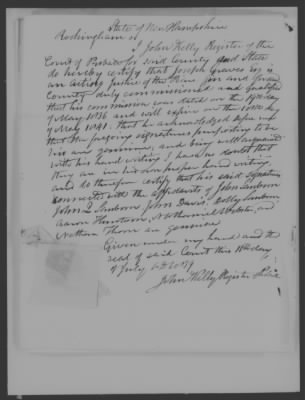 State of New Hampshire
Rockingham ss
I John Kelly Register of the
Court of Probate for said County and State
do hereby certify that Joseph Graves Esq is
an acting Justice of the Peace in and for said
County duly commissioned and qualified
that his commission was dated on the
of May 1836 and will expire on the
of May 1841. that he acknowledged before me
that the foregoing signatures purporting to be
his are genuine, and being well acquainted
with his hand writing I have no doubt that
they are in his own proper hand writing
and do therefore certify that his said signatures
connected with the affidavits of John Sanborn
John L Sanborn John Davis, Dolly Sanborn
Aaron Thurston, Nathaniel Webster, and
Nathan Thorn are genuine
Given under my hand and the
seal of said Court this day
of July AD 1839
John Kelly Register Probate